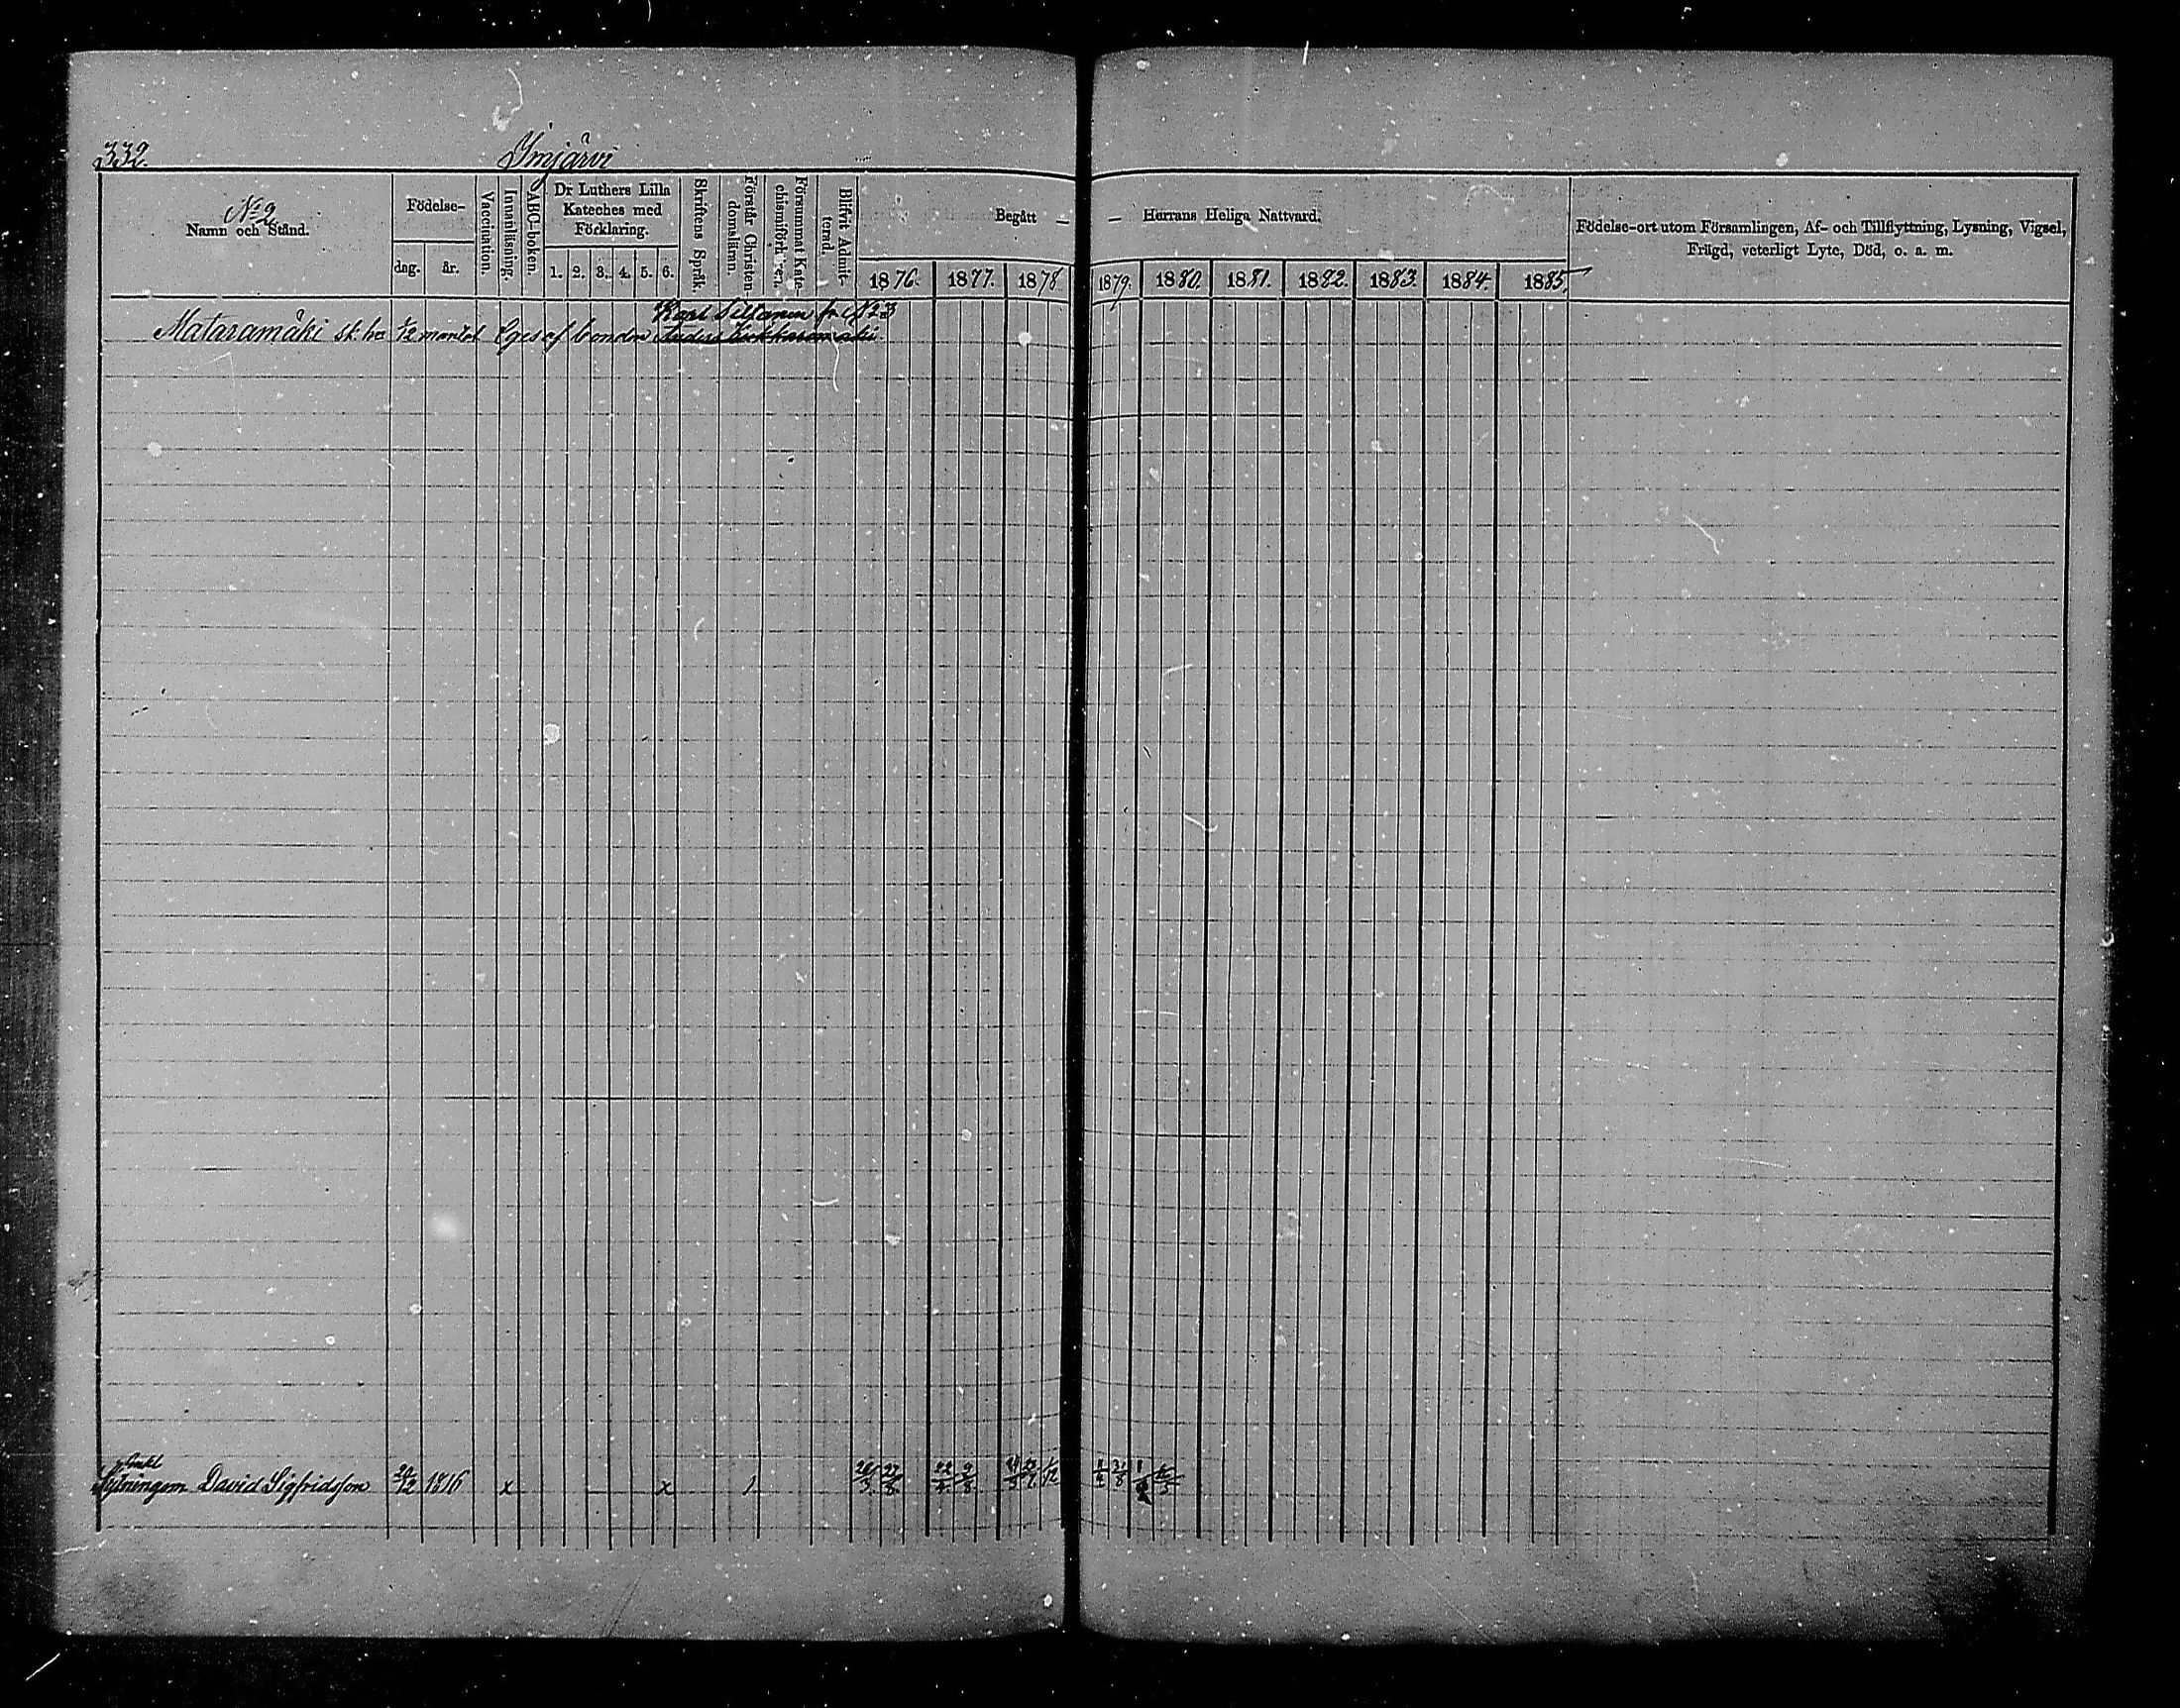 332.
Imjärvi
No 2
Namn och Stånd.
Födelse-
dag. år.
Vaccination.
Innanläsning.
ABC-boken.
Dr Luthers Lilla
Kateches med
Förklaring.
1. 2. 3. 4. 5. 6.
Skriftens Språk.
Förstår Christen-
domsläran.
Försummat Kate-
chismiförhören.
Blifvit Admit-
terad.
Begått — — Herrans Heliga Nattvard.
1876. 1877. 1878 1879. 1880. 1881. 1882. 1883. 1884. 1885.
Födelse-ort utom Församlingen, Af- och Tillflyttning, Lysning, Vigsel,
Frägd, veterligt Lyte, Död, o. a. m.
Karl Siltanen fr. No 3
Mataramäki sk. he 1/2 mantal Eges af bonden Anders
Enkl
Sytningsm David Sigfridsson 24/12 1816 x x 1 22/4 9/8